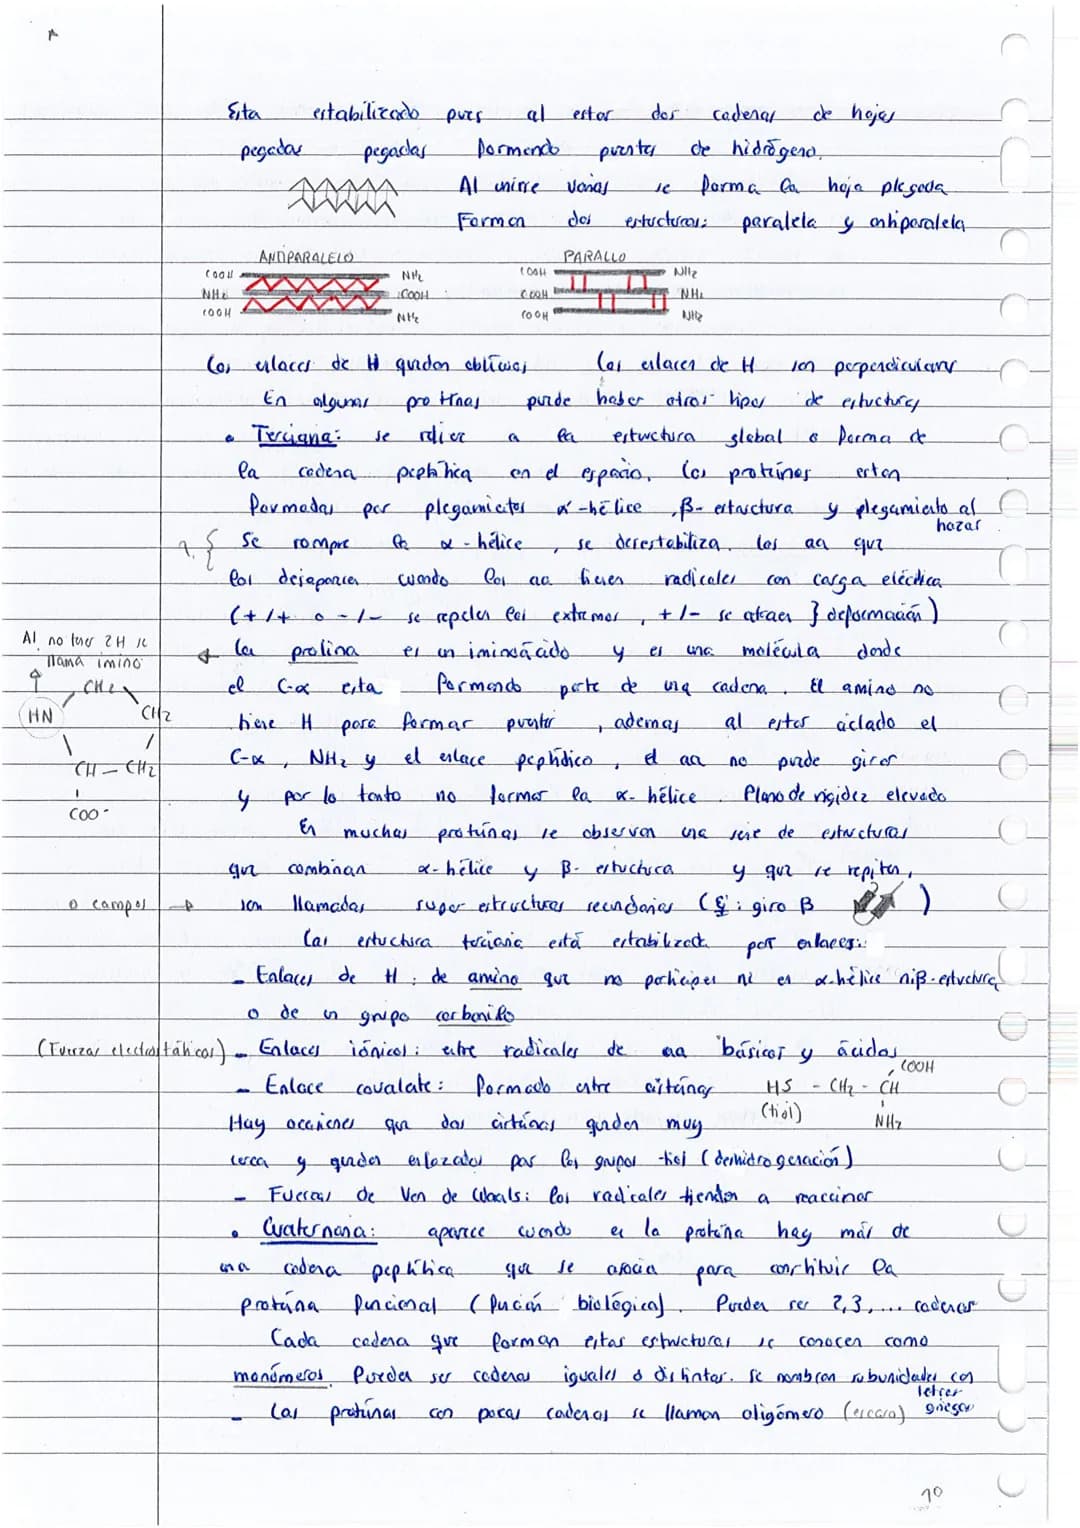 Esta estabilizado pues al estar dos cadenas de hojas
pegadas pegadas formando puentes de hidrógeno.
Al unirse varias se forma la hoja plegada
Forman dos estructuras: paralela y antiparalela
ANTIPARALELO PARALLO
COOH NH2 COOH NH2
NH2 COOH COOH NH2
COOH NH2 COOH NH2
Los enlaces de H quedan oblicuos Los enlaces de H son perpendiculares
En algunas proteinas puede haber otros tipos de estructuras
• Terciaria: se refiere a la estructura global o forma de
la cadena peptítica en el espacio. Las proteínas estan
formadas por plegamientos α-hélice, β-estructura y plegamiento al
hazar
Se rompe la α-hélice, se desestabiliza. Los aa que
los desaparcen cuando los aa tienen radicales con carga eléctrica
(+/+ o -/- se repelen los extremos, +/- se atraen } deformación)
Al no tener 2H se
llama imino
CH2
HN CH2
CH - CH2
COO-
La prolina es un iminoácido y es una molécula donde
el C-α esta formando parte de una cadena. El amino no
tiene H para formar puentes, ademas al estar ciclado el
C-α, NH2 y el enlace peptídico, el aa no puede girar
y por lo tanto no formar la α-hélice. Plano de rigidez elevado
En muchas proteinas se observan una serie de estructuras
que combinan α-hélice y β-estuctura y que se repiten,
o campos → son llamadas super estructuras secundarias (Ej: giro β )
Las estuctura terciaria está estabilizada por enlaces:
- Enlaces de H: de amino que no participen ni en α-hélice ni β-estuctura
o de un grupo carbonilo
(Fuerzas electrostáticas) - Enlaces iónicos: entre radicales de aa básicos y ácidos
- Enlace covalate: formado entre cisteínas HS - CH2 - CH
COOH
(tiol) NH2
Hay ocasiones que dos cisteínas quedan muy
cerca y quedan enlazados por los grupos tiol (deshidrogenación)
- Fuerzas de Van de Waals: los radicales tienden a reaccionar
• Cuaternaria: aparece cuando en la proteína hay más de
una cadena peptítica que se asocia para constituir la
proteína funcional (función biológica). Pueden ser 2,3,... cadenas
Cada cadena que forman estas estructuras se conocen como
monómeros. Pueden ser cadenas iguales o distintas. Se nombran subunidades con
letras
griegas
- Las proteínas con pocas cadenas se llaman oligómero (escasa)
10